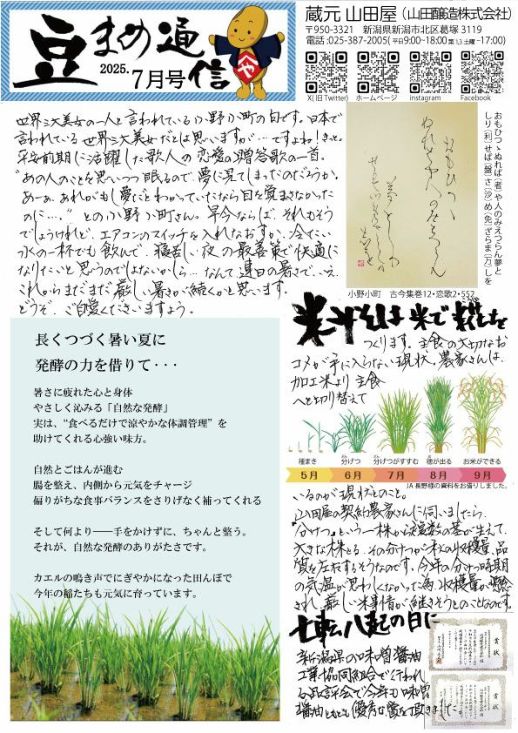 豆まめ通信
2025. 7月号
蔵元 山田屋（山田醸造株式会社）
〒950-3321　新潟県新潟市北区葛塚 3119
電話:025-387-2005(平日9:00-18:00 第1,3土曜-17:00)
X(旧Twitter) ホームページ instagram Facebook
世界三大美女の一人と言われている小野小町の句です。日本で
言われている世界三大美女だとは思いますが…ですよね！きっと。
平安前期に活躍した歌人の恋愛の贈答歌の一首。
"あの人のことを思いつつ眠るので、夢に見てしまったのだろうか。
あーぁ、あれがもし夢だとわかっていたなら目を覚まさなかった
のに…" との小野小町さん。
エアコンのスイッチを入れなおすか、冷たい
水の一杯でも飲んで、寝苦しい夜の最善策で快適に
なりたいと思うのではないかしら…なんて連日の暑さで、
これからまだまだ厳しい暑さが続くかと思います。
どうぞ、ご自愛くださいますよう。
おもひつゝぬれば(者)や人のみえつらん夢と
しり(利)せば(盤)さ(沙)め(免)ざらま(万)しを
小野小町　古今集巻12・恋歌2・552
長くつづく暑い夏に
発酵の力を借りて・・・
暑さに疲れた心と身体
やさしく沁みる「自然な発酵」
実は、“食べるだけで涼やかな体調管理” を
助けてくれる心強い味方。
自然とごはんが進む
腸を整え、内側から元気をチャージ
偏りがちな食事バランスをさりげなく補ってくれる
そして何より――手をかけずに、ちゃんと整う。
それが、自然な発酵のありがたさです。
カエルの鳴き声でにぎやかになった田んぼで
今年の稲たちも元気に育っています。
米みそは米で糀を
つくります。主食の大切なお
コメが手に入らない現状、農家さんは、
加工米より主食
へと切り替えて
種まき 分げつ 分げつがすすむ 穂が出る お米ができる
5月 6月 7月 8月 9月
JA長野様の資料をお借りしました。
いるのが現状とのこと。
山田屋の契約農家さんに伺いましたら、
"分けつ"という一株から複数の茎が生えて、
大きな株となる。その分けつが米の収穫量、品
質を左右するそうなのです。今年の分けつ時期
の気温が思わしくなかった為、収穫量が懸念
され、厳しい米事情が継きそうとのことなのです。
七転八起の日に
新潟県の味噌醤油
工業協同組合で行われ
る品評会で今年も味噌
醤油ともども優秀な賞を頂きました。
賞状
賞状